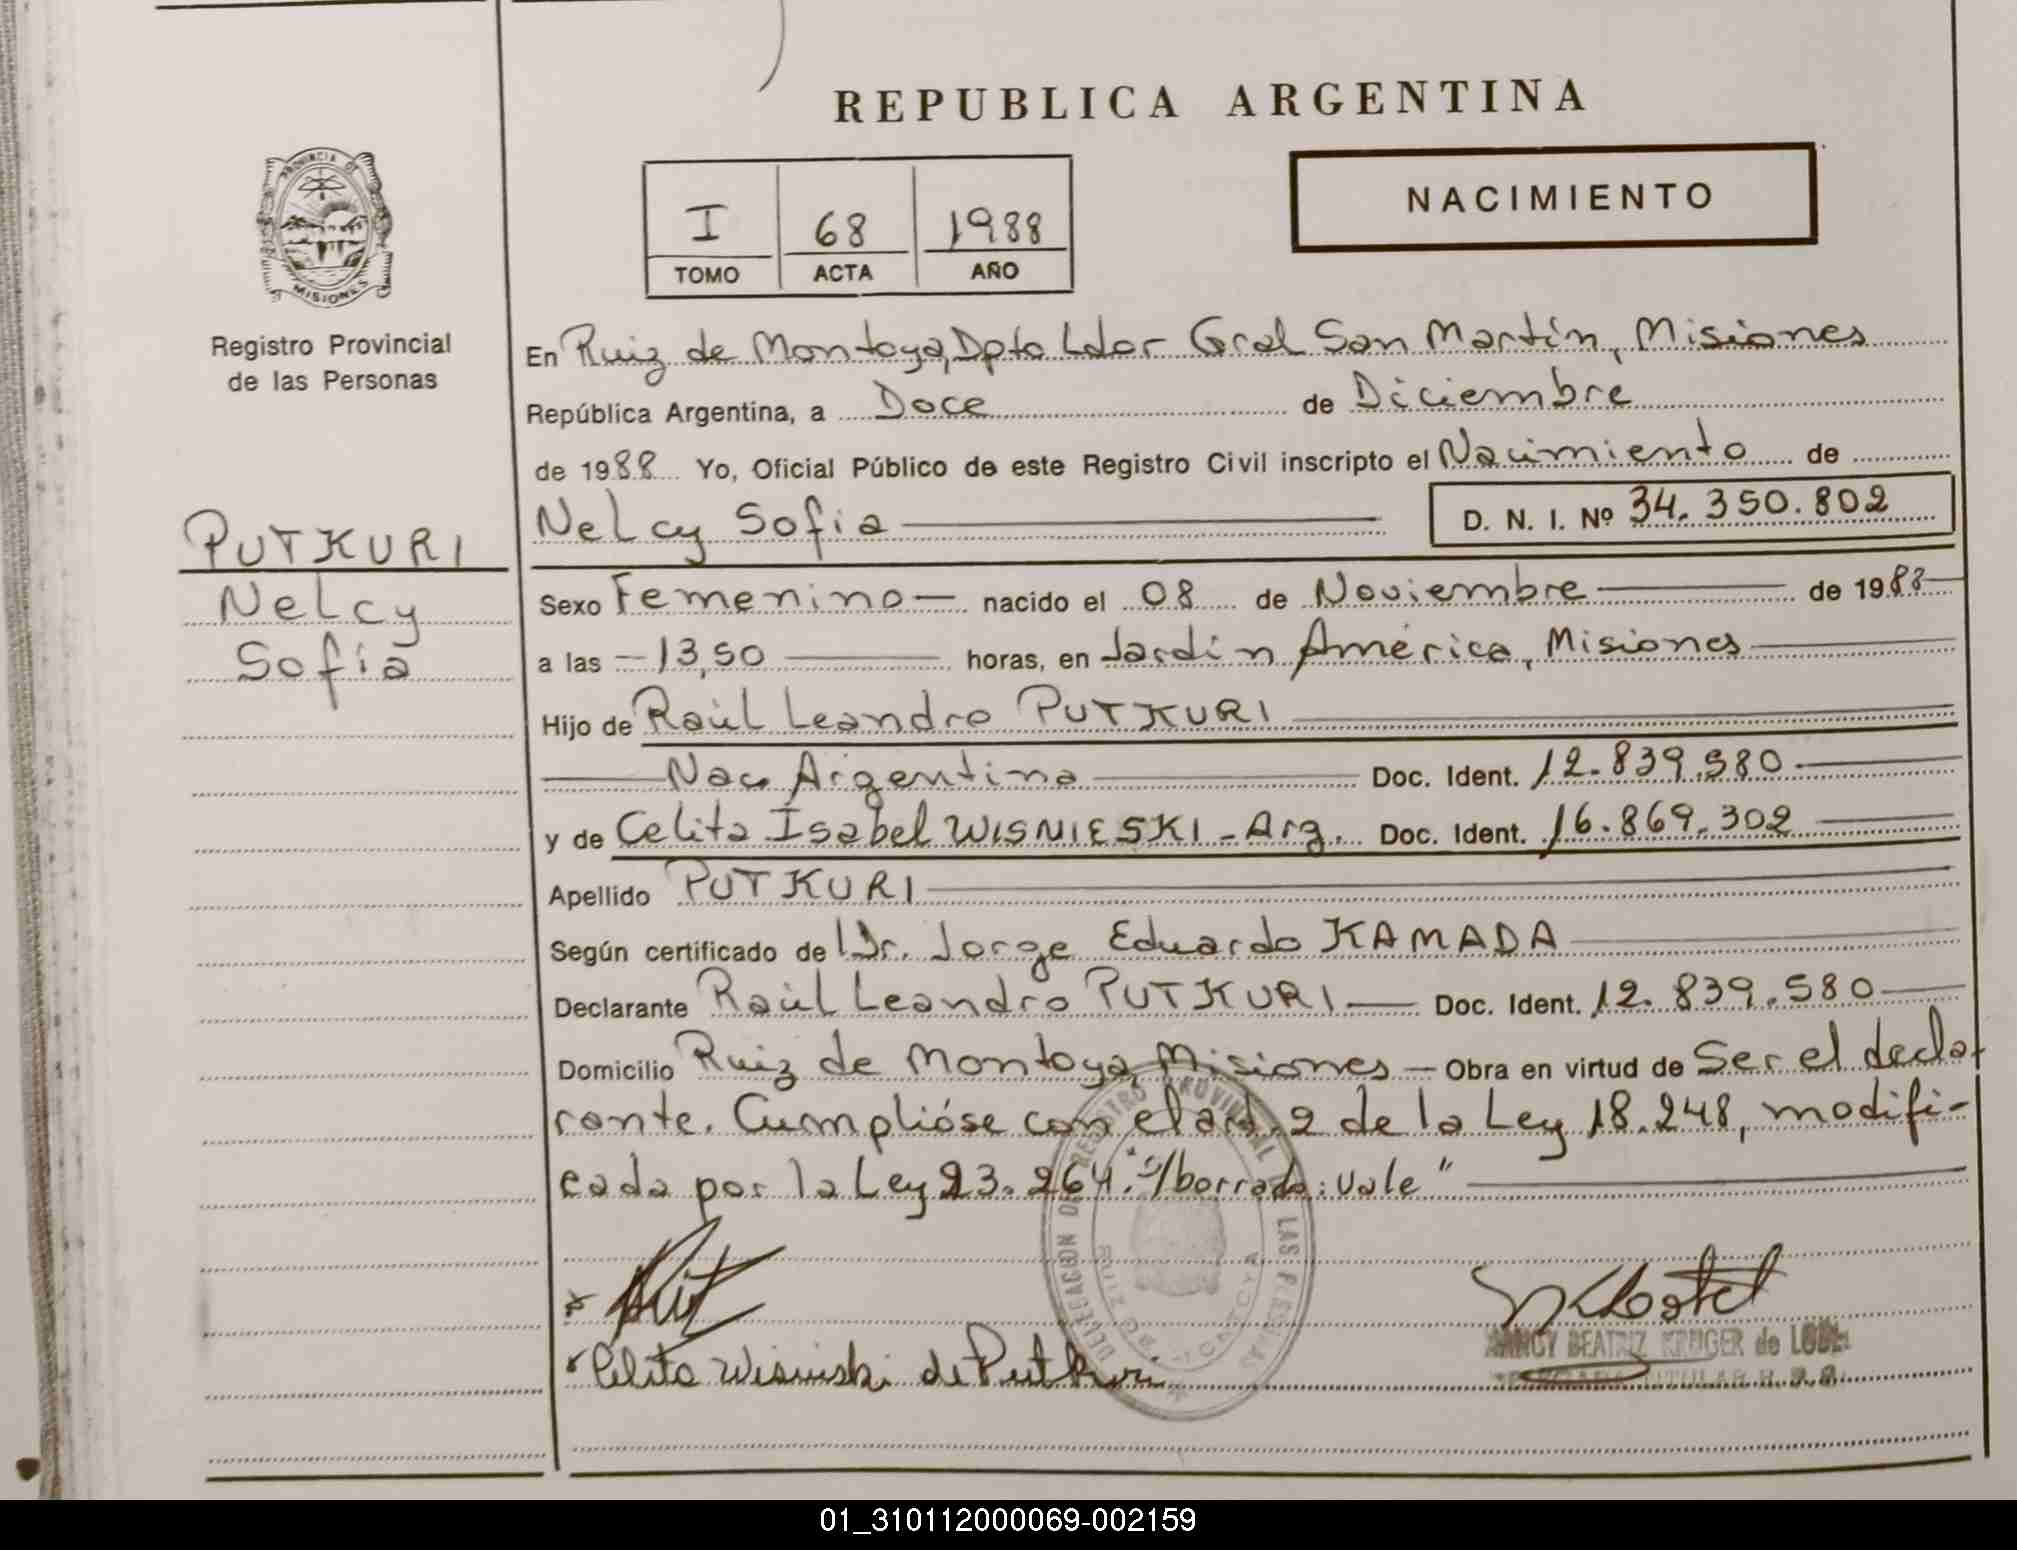 REPUBLICA ARGENTINA
NACIMIENTO
I 68 1988
TOMO ACTA AÑO
PROVINCIA DE
MISIONES
Registro Provincial
de las Personas
PUTKURI
Nelcy
Sofía
En Ruiz de Montoya, Dpto Ldor Gral San Martín, Misiones
República Argentina, a Doce de Diciembre
de 1988 Yo, Oficial Público de este Registro Civil inscripto el Nacimiento de
Nelcy Sofia D. N. I. Nº 34.350.802
Sexo Femenino nacido el 08 de Noviembre de 1988
a las 13,50 horas, en Jardín América, Misiones
Hijo de Raúl Leandro PUTKURI
Nac Argentina Doc. Ident. 12.839.580
y de Celita Isabel WISNIESKI - Arg. Doc. Ident. 16.869.302
Apellido PUTKURI
Según certificado de Dr. Jorge Eduardo KAMADA
Declarante Raúl Leandro PUTKURI Doc. Ident. 12.839.580
Domicilio Ruiz de Montoya, Misiones - Obra en virtud de Ser el decla-
rante. Cumplióse con el art. 2 de la Ley 18.248, modifi-
cada por la Ley 23.264. "S/borrado: vale"
DELEGACION DE REGISTRO PROVINCIAL DE LAS PERSONAS
RUIZ DE MONTOYA
Celita Wisniski de Putkuri
NANCY BEATRIZ KRUGER de
TITULAR R. P. P.
01_310112000069-002159